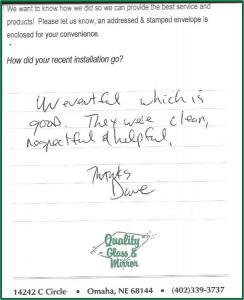 We want to know how we did so we can provide the best service and
products! Please let us know, an addressed & stamped envelope is
enclosed for your convenience.
How did your recent installation go?
Uneventful which is
good. They were clean,
respectful & helpful.
Thanks
Dave
Quality
Glass &
Mirror
14242 C Circle • Omaha, NE 68144 • (402)339-3737